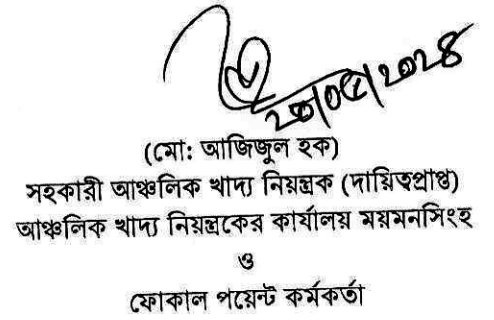 ২৩/০৫/২০২৪
(মো: আজিজুল হক)
সহকারী আঞ্চলিক খাদ্য নিয়ন্ত্রক (দায়িত্বপ্রাপ্ত)
আঞ্চলিক খাদ্য নিয়ন্ত্রকের কার্যালয় ময়মনসিংহ
ও
ফোকাল পয়েন্ট কর্মকর্তা